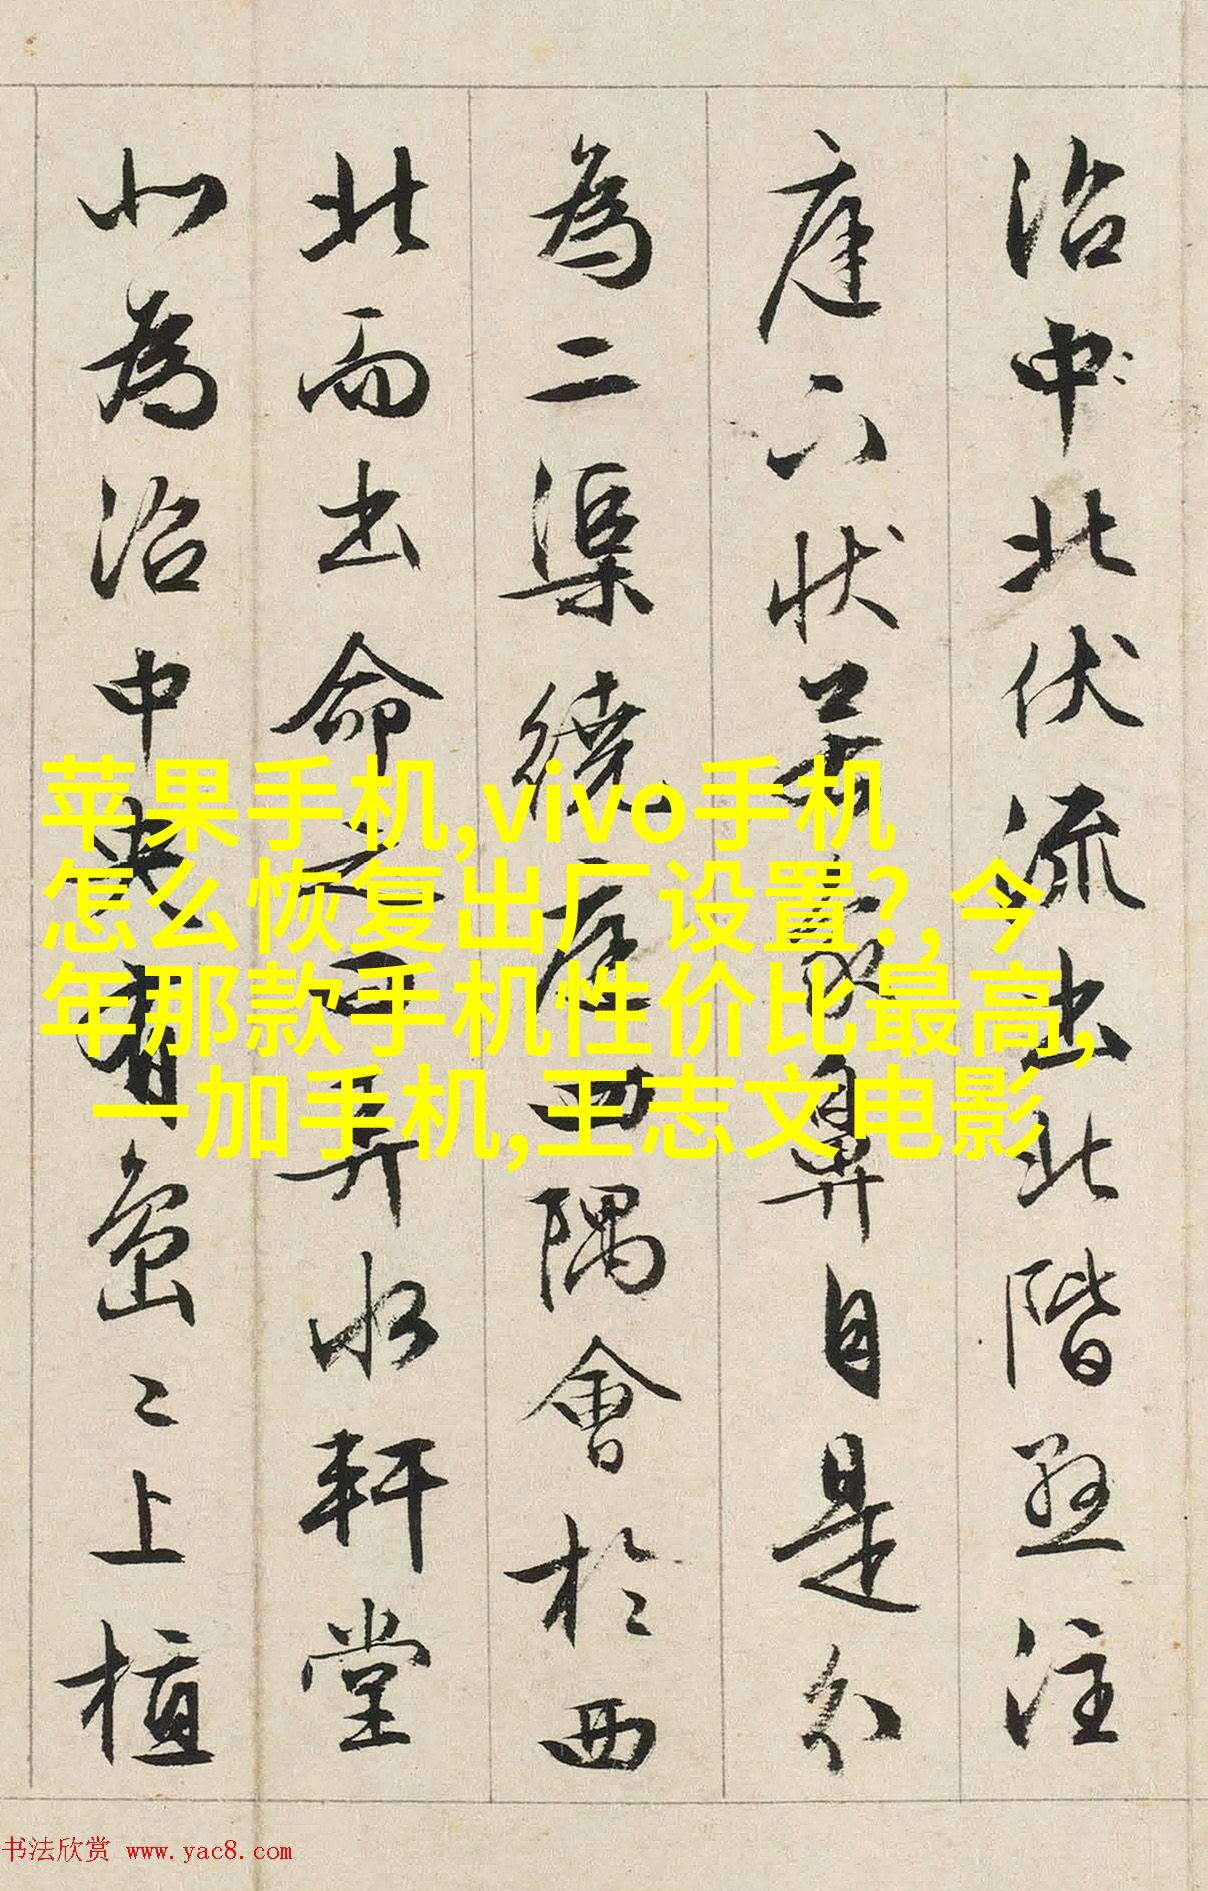 沼中北伏流出北階懸注
庭下狀若象鼻自是分
為二渠繞庭四隅會於西
北而出命之曰弄水軒堂
北為沼中央有島〻上植
苹果手机,vivo手机
怎么恢复出厂设置?,今
年那款手机性价比最高,
一加手机,王志文电影
书法欣赏 www.yac8.com